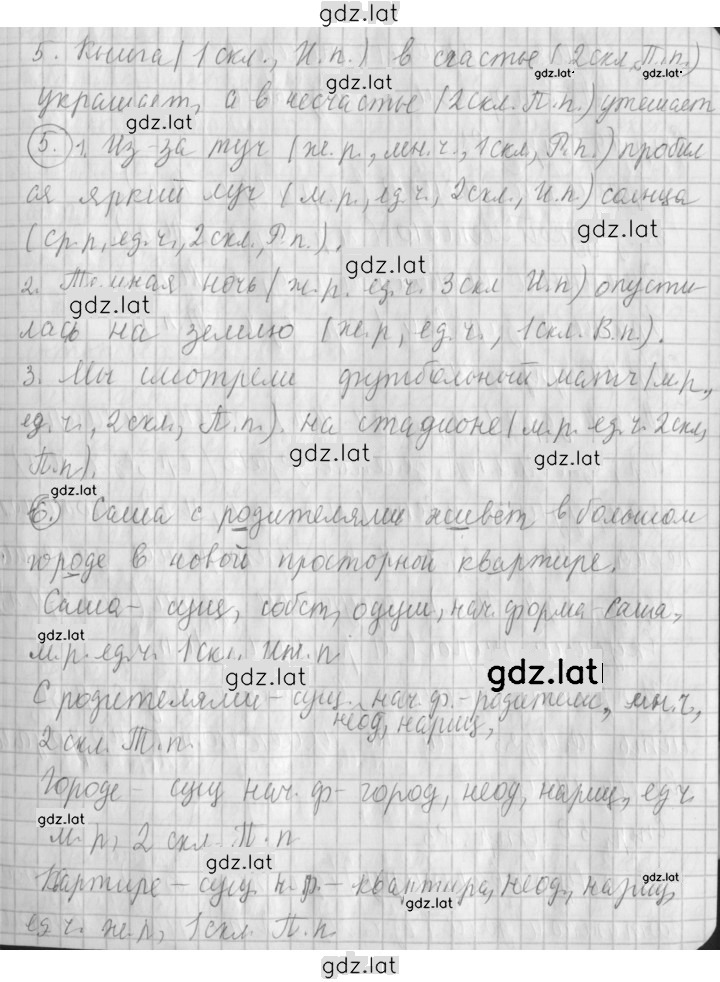 gdz.lat
5. Книга (1скл., И.п.) в счастье (2скл. П.п.)
gdz.lat gdz.lat
украшает, а в несчастье (2скл. П.п.) утешает
gdz.lat
5. 1. Из-за туч (ж.р., мн.ч., 1скл, Р.п.) пробил
ся яркий луч (м.р., ед.ч., 2скл., И.п.) солнца
gdz.lat
(ср.р, ед.ч., 2скл., Р.п.).
gdz.lat
2. Темная ночь (ж.р. ед.ч. 3скл И.п) опусти
gdz.lat
лась на землю (ж.р, ед.ч., 1скл. В.п.).
3. Мы смотрели футбольный матч (м.р.,
ед.ч., 2скл., П.п.). на стадионе (м.р. ед.ч. 2скл,
gdz.lat gdz.lat
П.п).
gdz.lat
6. Саша с родителями живет в большом
городе в новой просторной квартире.
Саша - сущ, собст, одуш, нач. форма - Саша,
gdz.lat
м.р. ед.ч. 1 скл. Им.п
gdz.lat gdz.lat
С родителями - сущ. нач. ф. - родители, мн.ч,
неод, нариц,
2 скл. Т.п.
Городе - сущ нач. ф - город, неод, нариц, ед ч.
gdz.lat
м.р, 2 скл. П.п
gdz.lat gdz.lat
Квартире - сущ н.ф. - квартира, неод., нариц,
gdz.lat
ед ч. ж.р, 1 скл. П.п
gdz.lat